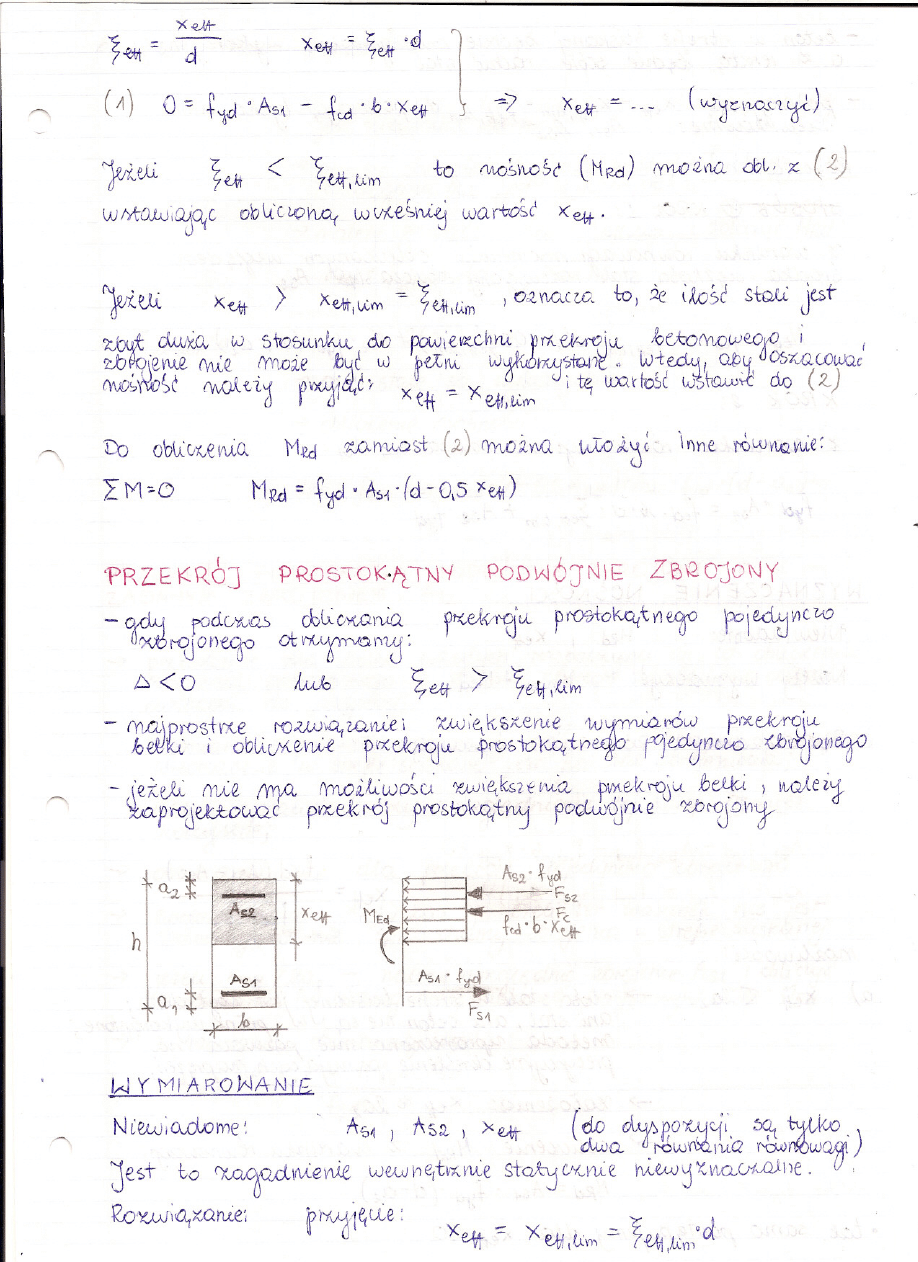 ξeff = xeff / d    xeff = ξeff · d
(1) 0 = fyd · As1 − fcd · b · xeff    ⇒ xeff = .... (wyznaczyć)
Jeżeli ξeff < ξeff,lim to nośność (MRd) można obl. z (2)
wstawiając obliczoną wcześniej wartość xeff.
Jeżeli xeff > xeff,lim = ξeff,lim , oznacza to, że ilość stali jest
zbyt duża w stosunku do powierzchni przekroju betonowego i
zbrojenie nie może być w pełni wykorzystane. Wtedy, aby oszacować
nośność należy przyjąć: xeff = xeff,lim i tę wartość wstawić do (2)
Do obliczenia MRd zamiast (2) można ułożyć inne równanie:
ΣM=0    MRd = fyd · As1 · (d − 0,5 xeff)
PRZEKRÓJ PROSTOKĄTNY PODWÓJNIE ZBROJONY
- gdy podczas obliczania przekroju prostokątnego pojedynczo
zbrojonego otrzymamy:
Δ < 0    lub    ξeff > ξeff,lim
- najprostsze rozwiązanie: zwiększenie wymiarów przekroju
belki i obliczenie przekroju prostokątnego pojedynczo zbrojonego
- jeżeli nie ma możliwości zwiększenia przekroju belki, należy
zaprojektować przekrój prostokątny podwójnie zbrojony
a2
As2
xeff
h
As1
a1
b
As2 · fyd
Fs2
MEd
Fc
fcd · b · xeff
As1 · fyd
Fs1
WYMIAROWANIE
Niewiadome: As1, As2, xeff (do dyspozycji są tylko
dwa równania równowagi)
Jest to zagadnienie wewnętrznie statycznie niewyznaczalne.
Rozwiązanie: przyjęcie: xeff = xeff,lim = ξeff,lim · d